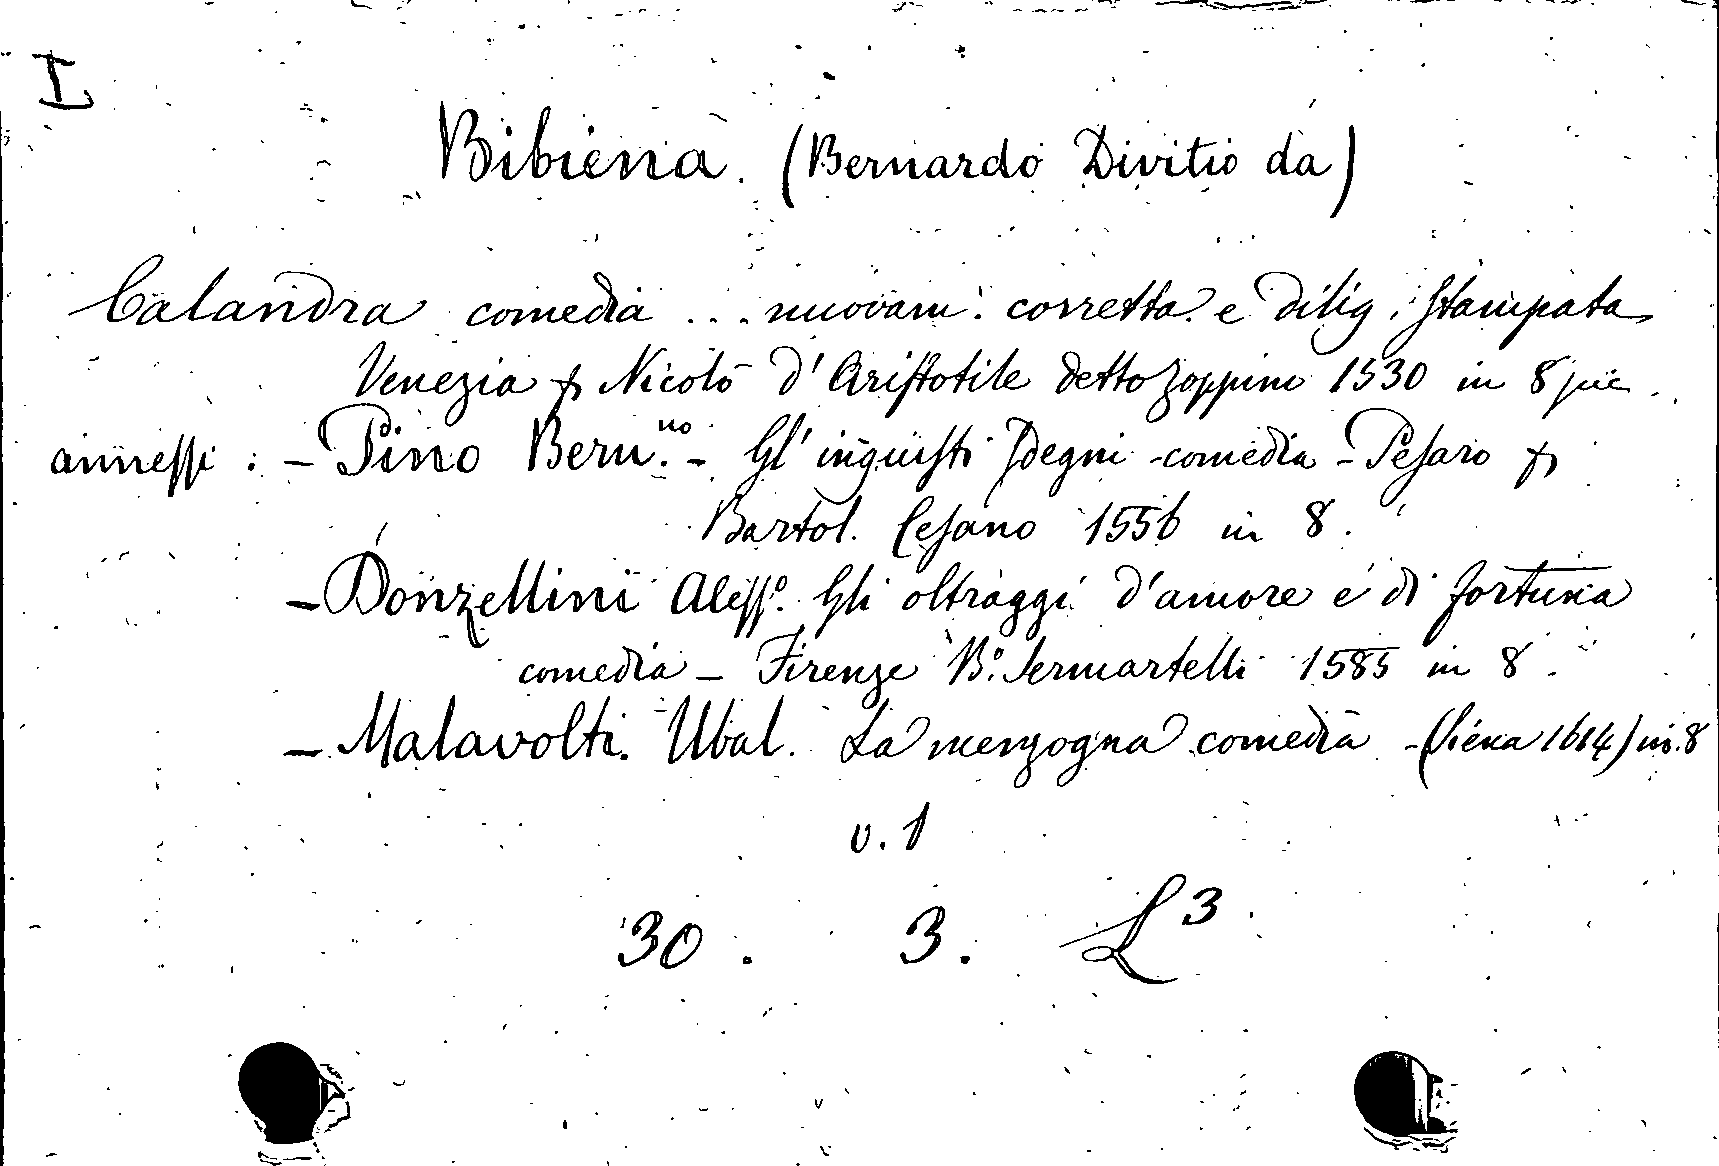 I
Bibiena. (Bernardo Divitio da)
Calandra comedia ... nuovam. corretta e dilig. stampata
Venezia p Nicolò d'Aristotile detto Zoppino 1530 in 8 pic
annessi : - Pino Bern.no - Gl' ingiusti sdegni - comedia - Pesaro p
Bartol. Cesano 1556 in 8.
- Donzellini Aless°. Gli oltraggi d'amore e di fortuna
comedia - Firenze B° Sermartelli 1585 in 8.
- Malavolti. Ubal. La menzogna comedia - (Siena 1614) in 8
v. 1
30. 3. L3